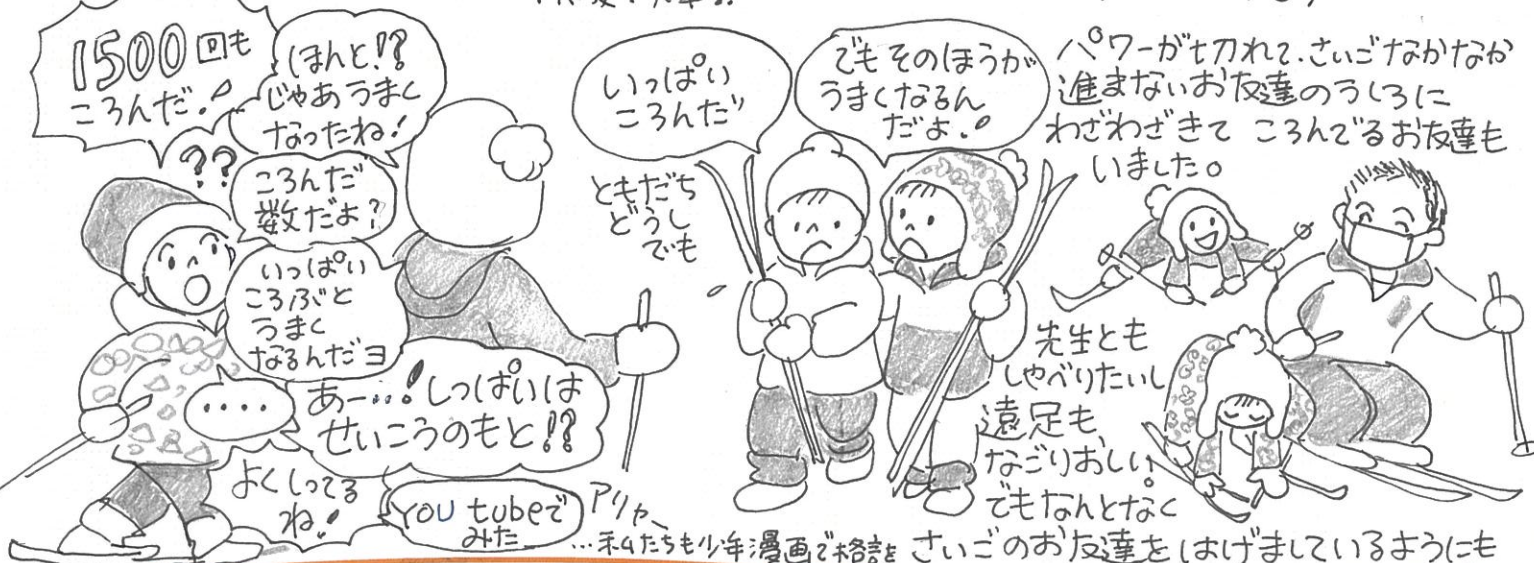 1500回も
ころんだ!
ほんと!?
じゃあうまく
なったね!
??
ころんだ
数だよ?
いっぱい
ころぶと
うまく
なるんだヨ
....
あー…!しっぱいは
せいこうのもと!?
よくしってる
ね!
YOU tubeで
みた
アリャ、
…私たちも少年漫画で格言を
いっぱい
ころんだ"
でもそのほうが
うまくなるん
だよ!
ともだち
どうし
でも
パワーが切れて、さいごなかなか
進まないお友達のうしろに
わざわざきて ころんでるお友達も
いました。
先生とも
しゃべりたいし
遠足も、
なごりおしい。
でもなんとなく
さいごのお友達をはげましているようにも